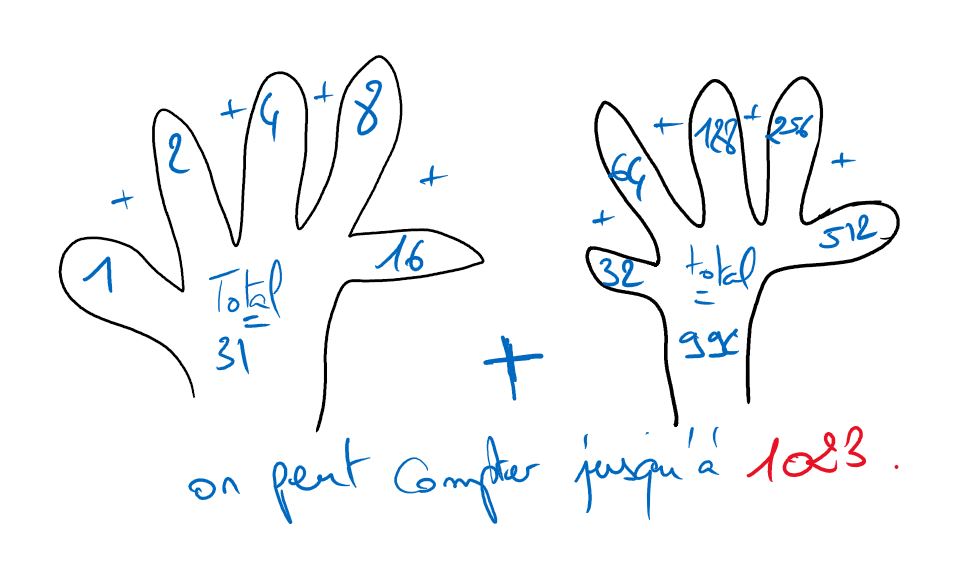 1 + 2 + 4 + 8 + 16
Total
31
+
32 + 64 + 128 + 256 + 512
total
992
on peut compter jusqu'à 1023.